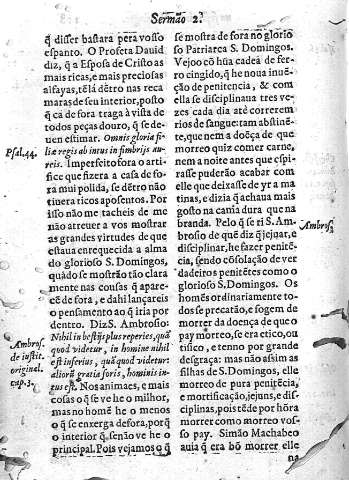 Sermão 2.
q̃ disser bastara pera vosso
espanto. O Profeta Dauid
diz, q̃ a Esposa de Cristo as
mais ricas, e mais preciosas
alfayas, tẽ lá dẽtro nas reca
maras de seu interior, posto
q̃ ca de fora traga à vista de
todos peças douro, q̃ se de-
uen estimar. Omnis gloria fi-
Psal. 44.
liæ regis ab intus in fimbrijs au-
reis. Imperfeito fora o arti-
fice que fizera a casa de fo-
ra mui polida, se dẽtro nāo
tiuera ricos aposentos. Por
isso não me tacheis de me
não atreuer a vos mostrar
as grandes virtudes de que
estaua enrequecida a alma
do glorioso S. Domingos,
quãdo se mostrão tão clara
mente nas cousas q̃ apare-
cẽ de fora, e dahi lançareis
o pensamento ao q̃ iria por
dentro. Diz S. Ambrosio:
Nihil in bestijs plus reperies, quã
Ambros.
quod videtur, in homine nihil
de iustit.
est inferius, quã quod videtur
original.
alior㠀gratia foris, hominis in-
cap. 3.
tus est. Nos animaes, e mais
cousas o q̃ se ve he o milhor,
mas no homẽ he o menos
o q̃ se enxerga de fora, por q̃
o interior q̃ senão ve he o
principal. Pois vejamos o q̃
se mostra de fora no glorio
so Patriarca S. Domingos.
Vejoo cõ hũa cadeá de fer-
ro cingido, q̃ he noua inuẽ-
ção de penitencia, & com
ella se disciplinaua tres ve-
zes cada dia atè correrem
rios de sangue: tam abstinẽ-
te, que nem a doẽça de que
morreo quiz comer carne,
nem a noite antes que espi-
rasse puderão acabar com
elle que deixasse de yr a ma
tinas, e dizia q̃ achaua mais
gosto na cama dura que na
branda. Pelo q̃ se ri S. Am-
Ambros.
brosio de quẽ diz q̃ jejuar, e
disciplinar, he fazer penitẽ-
cia, sendo cõsolação de ver
dadeiros penitẽtes como o
glorioso S. Domingos. Os
homẽs ordinariamente to-
dos se precatão, e fogem de
morrer da doença de que o
pay morreo, se era etico, ou
tisico, e tenno por grande
desgraça: mas não assim as
filhas de S. Domingos, elle
morreo de pura penitẽcia,
e mortificação, jejuns, e dis-
ciplinas, pois tẽde por hõra
morrer como morreo vos-
so pay. Simão Machabeo
auia q̃ era bõ morrer elle
na